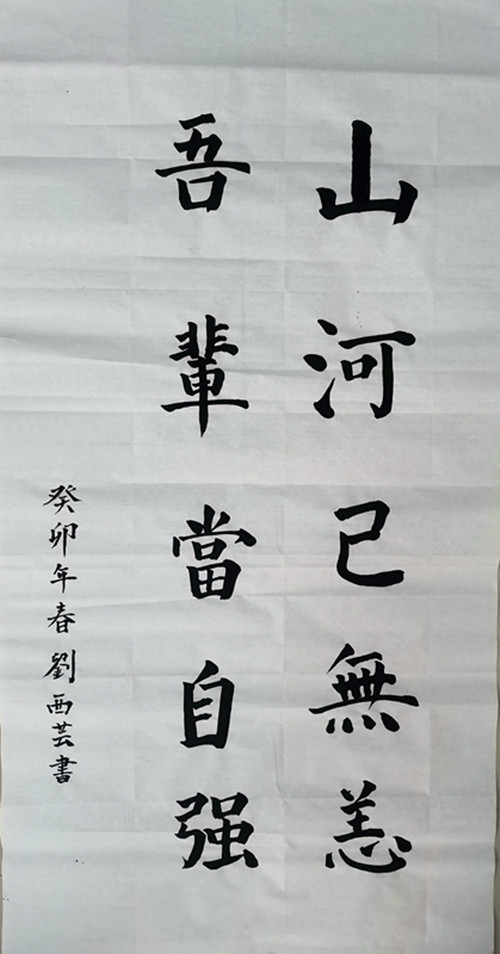 山河已無恙
吾輩當自强
癸卯年春劉西芸書